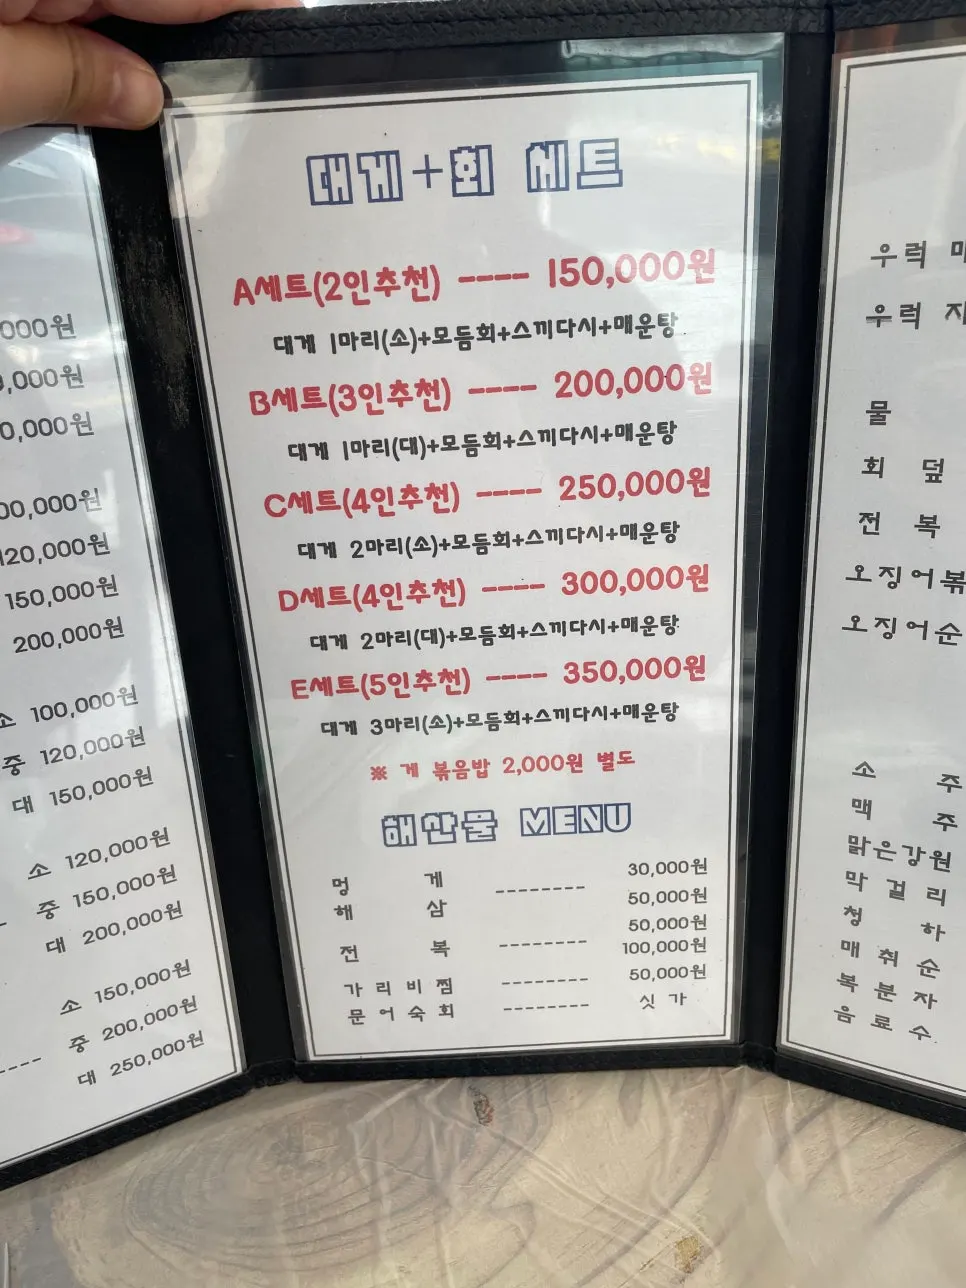 000원
,000원
0,000원
00,000원
120,000원
150,000원
200,000원
소 100,000원
중 120,000원
대 150,000원
소 120,000원
중 150,000원
대 200,000원
소 150,000원
---- 중 200,000원
대 250,000원
대게+회 세트
A세트(2인추천) ---- 150,000원
대게 1마리(소)+모듬회+스끼다시+매운탕
B세트(3인추천) ---- 200,000원
대게 1마리(대)+모듬회+스끼다시+매운탕
C세트(4인추천) ---- 250,000원
대게 2마리(소)+모듬회+스끼다시+매운탕
D세트(4인추천) ---- 300,000원
대게 2마리(대)+모듬회+스끼다시+매운탕
E세트(5인추천) ---- 350,000원
대게 3마리(소)+모듬회+스끼다시+매운탕
※ 게 볶음밥 2,000원 별도
해산물 MENU
멍 게 -------- 30,000원
해 삼 50,000원
50,000원
전 복 -------- 100,000원
가 리 비 찜 -------- 50,000원
문 어 숙 회 -------- 싯 가
우럭
우럭
물
회 덮
전 복
오징어볶
오징어순
소 주
맥 주
맑은강원
막 걸 리
청 하
매 취 순
복 분 자
음 료 수